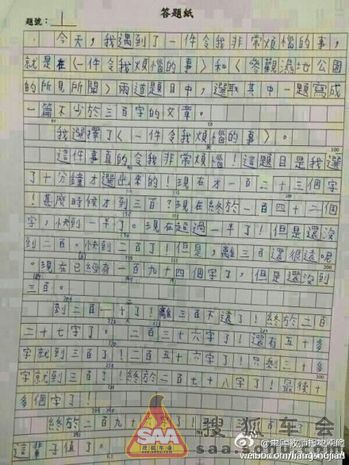 答題紙
題號：
今天，我遇到了一件令我非常煩惱的事，
就是在《一件令我煩惱的事》和《參觀濕地公園
的所見所聞》兩道題目中，選取其中一題寫成
一篇不少於三百字的文章。
我選擇了《一件令我煩惱的事》。
這件事真的令我非常煩惱！這題目是我選
了十分鐘才選出來的！現在才一百二十三個字
！甚麼時候才到三百？現在終於一百四十二個
字，快到一半了。現在超過一半了！但是還沒
到二百。快到二百了！但是，離三百還很遠呢
。現在已經有一百九十四個字了，但是還沒到
三百。
到二百一了！離三百不遠了！終於二百
二十七字了。二百三十六字了！還有五十多
字就到三百了！二百五十六字了！只剩三十多
字就到三百了！二百七十八字了！只餘十
多個字了！
終於二百九
這輩子值了。
SAA
搜狐车会
saa.
weibo.com/jiangshoujian